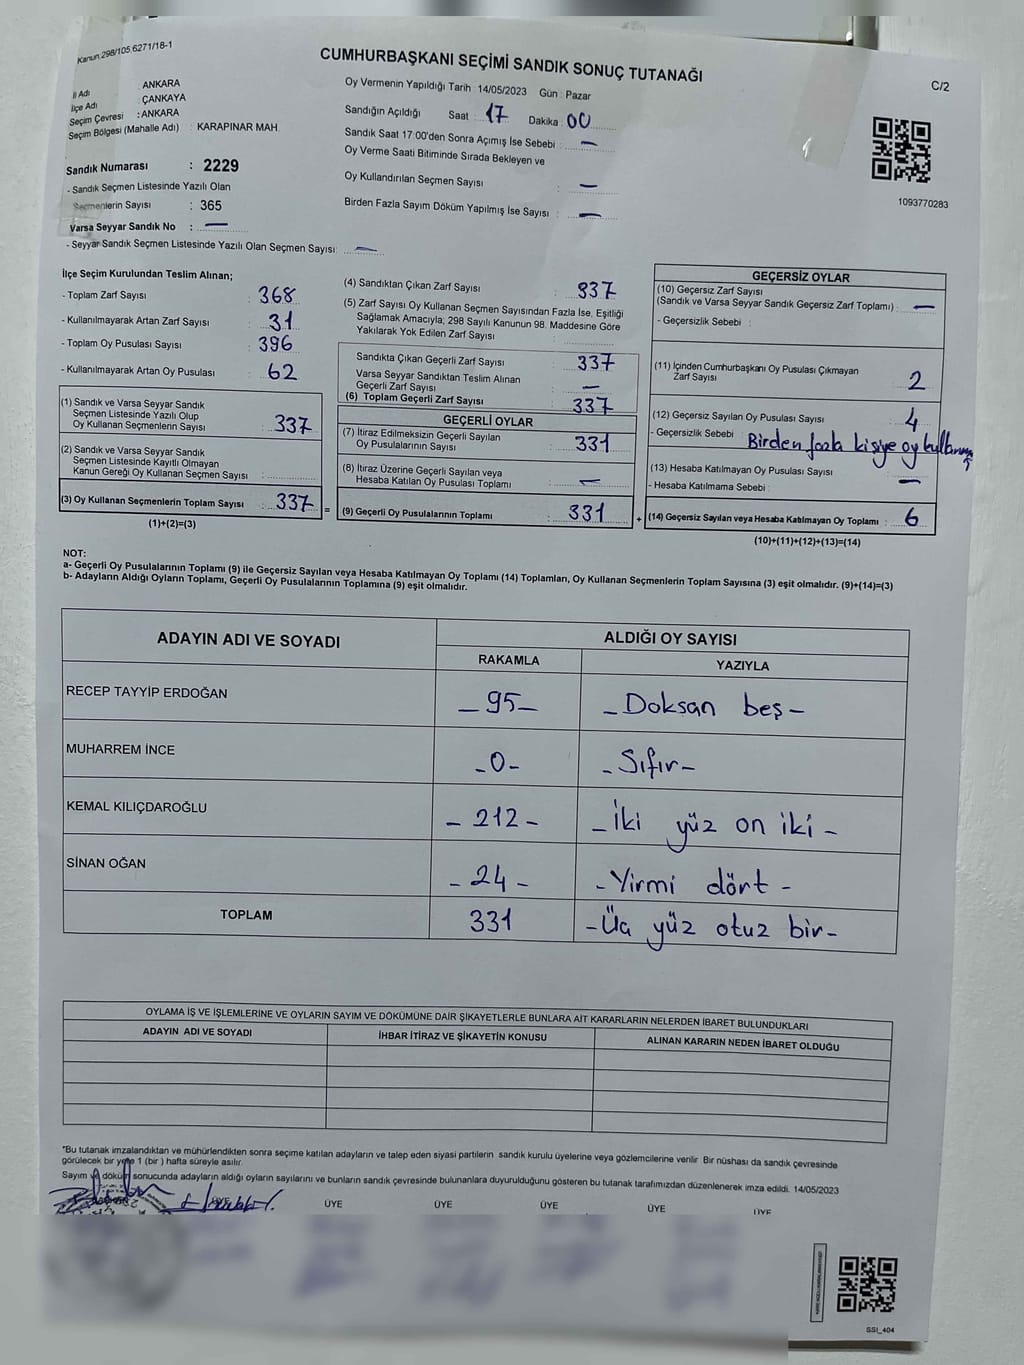 Kanun:298/105,6271/18-1
CUMHURBAŞKANI SEÇİMİ SANDIK SONUÇ TUTANAĞI
C/2
İl Adı : ANKARA
İlçe Adı : ÇANKAYA
Seçim Çevresi : ANKARA
Seçim Bölgesi (Mahalle Adı) : KARAPINAR MAH.
Oy Vermenin Yapıldığı Tarih : 14/05/2023 Gün : Pazar
Sandığın Açıldığı Saat : 17 Dakika : 00
Sandık Saat 17:00'den Sonra Açımış İse Sebebi : —
Oy Verme Saati Bitiminde Sırada Bekleyen ve
Oy Kullandırılan Seçmen Sayısı : —
Birden Fazla Sayım Döküm Yapılmış İse Sayısı : —
1093770283
Sandık Numarası : 2229
- Sandık Seçmen Listesinde Yazılı Olan
Seçmenlerin Sayısı : 365
Varsa Seyyar Sandık No : —
- Seyyar Sandık Seçmen Listesinde Yazılı Olan Seçmen Sayısı: —
İlçe Seçim Kurulundan Teslim Alınan;
- Toplam Zarf Sayısı : 368
- Kullanılmayarak Artan Zarf Sayısı : 31
- Toplam Oy Pusulası Sayısı : 396
- Kullanılmayarak Artan Oy Pusulası : 62
(1) Sandık ve Varsa Seyyar Sandık
Seçmen Listesinde Yazılı Olup
Oy Kullanan Seçmenlerin Sayısı : 337
(2) Sandık ve Varsa Seyyar Sandık
Seçmen Listesinde Kayıtlı Olmayan
Kanun Gereği Oy Kullanan Seçmen Sayısı :
(3) Oy Kullanan Seçmenlerin Toplam Sayısı : 337 =
(1)+(2)=(3)
(4) Sandıktan Çıkan Zarf Sayısı : 337
(5) Zarf Sayısı Oy Kullanan Seçmen Sayısından Fazla İse, Eşitliği
Sağlamak Amacıyla; 298 Sayılı Kanunun 98. Maddesine Göre
Yakılarak Yok Edilen Zarf Sayısı :
Sandıkta Çıkan Geçerli Zarf Sayısı : 337
Varsa Seyyar Sandıktan Teslim Alınan
Geçerli Zarf Sayısı : —
(6) Toplam Geçerli Zarf Sayısı : 337
GEÇERLİ OYLAR
(7) İtiraz Edilmeksizin Geçerli Sayılan
Oy Pusulalarının Sayısı : 331
(8) İtiraz Üzerine Geçerli Sayılan veya
Hesaba Katılan Oy Pusulası Toplamı : —
(9) Geçerli Oy Pusulalarının Toplamı : 331 +
GEÇERSİZ OYLAR
(10) Geçersiz Zarf Sayısı
(Sandık ve Varsa Seyyar Sandık Geçersiz Zarf Toplamı) : —
- Geçersizlik Sebebi :
(11) İçinden Cumhurbaşkanı Oy Pusulası Çıkmayan
Zarf Sayısı 2
(12) Geçersiz Sayılan Oy Pusulası Sayısı : 4
- Geçersizlik Sebebi : Birden fazla kişiye oy kullanmış
(13) Hesaba Katılmayan Oy Pusulası Sayısı : —
- Hesaba Katılmama Sebebi :
(14) Geçersiz Sayılan veya Hesaba Katılmayan Oy Toplamı : 6
(10)+(11)+(12)+(13)=(14)
NOT:
a- Geçerli Oy Pusulalarının Toplamı (9) ile Geçersiz Sayılan veya Hesaba Katılmayan Oy Toplamı (14) Toplamları, Oy Kullanan Seçmenlerin Toplam Sayısına (3) eşit olmalıdır. (9)+(14)=(3)
b- Adayların Aldığı Oyların Toplamı, Geçerli Oy Pusulalarının Toplamına (9) eşit olmalıdır.
ADAYIN ADI VE SOYADI
ALDIĞI OY SAYISI
RAKAMLA YAZIYLA
RECEP TAYYİP ERDOĞAN – 95 – – Doksan beş –
MUHARREM İNCE – 0 – – Sıfır –
KEMAL KILIÇDAROĞLU – 212 – – İki yüz on iki –
SİNAN OĞAN – 24 – – Yirmi dört –
TOPLAM 331 – Üç yüz otuz bir –
OYLAMA İŞ VE İŞLEMLERİNE VE OYLARIN SAYIM VE DÖKÜMÜNE DAİR ŞİKAYETLERLE BUNLARA AİT KARARLARIN NELERDEN İBARET BULUNDUKLARI
ADAYIN ADI VE SOYADI İHBAR İTİRAZ VE ŞİKAYETİN KONUSU ALINAN KARARIN NEDEN İBARET OLDUĞU
*Bu tutanak imzalandıktan ve mühürlendikten sonra seçime katılan adayların ve talep eden siyasi partilerin sandık kurulu üyelerine veya gözlemcilerine verilir. Bir nüshası da sandık çevresinde
görülecek bir yere 1 (bir) hafta süreyle asılır.
Sayım ve döküm sonucunda adayların aldığı oyların sayılarını ve bunların sandık çevresinde bulunanlara duyurulduğunu gösteren bu tutanak tarafımızdan düzenlenerek imza edildi. 14/05/2023
ÜYE ÜYE ÜYE ÜYE ÜYE ÜYE
SSI_404